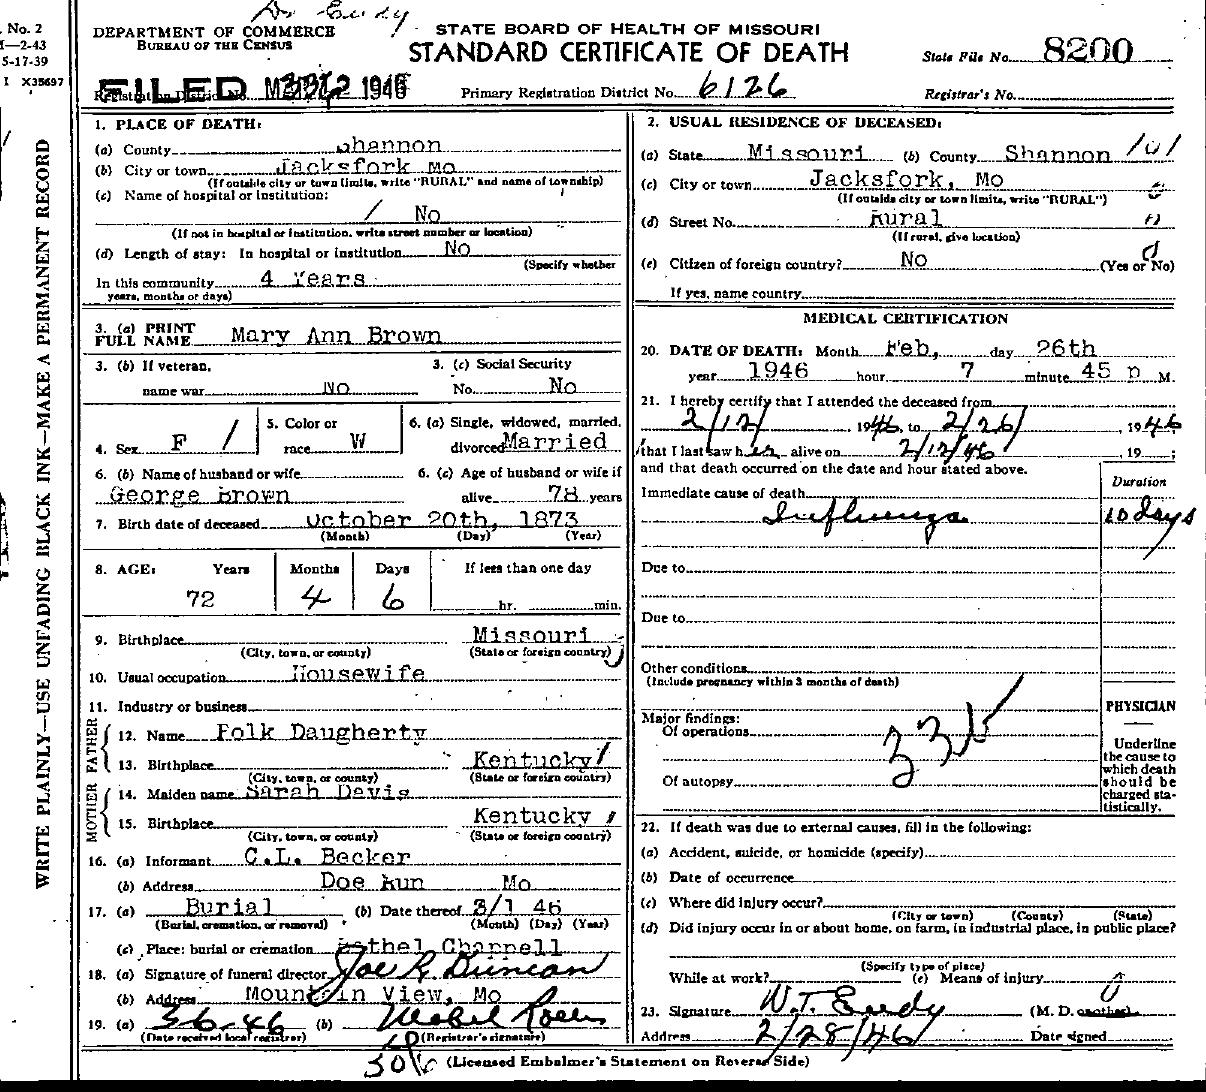 Dr Eudy
. No. 2
1—2-43
5-17-39
I X35697
WRITE PLAINLY—USE UNFADING BLACK INK—MAKE A PERMANENT RECORD
DEPARTMENT OF COMMERCE
BUREAU OF THE CENSUS
STATE BOARD OF HEALTH OF MISSOURI
STANDARD CERTIFICATE OF DEATH
State File No. 8200
FILED 1946
Registration District No.
Primary Registration District No. 6126
Registrar's No.
1. PLACE OF DEATH:
(a) County Shannon
(b) City or town Jacksfork Mo
(If outside city or town limits, write "RURAL" and name of township)
(c) Name of hospital or institution:
/ No
(If not in hospital or institution, write street number or location)
(d) Length of stay: In hospital or institution No
(Specify whether
In this community 4 Years
years, months or days)
3. (a) PRINT
FULL NAME Mary Ann Brown
3. (b) If veteran,
name war No
3. (c) Social Security
No. No
4. Sex F /
5. Color or
race W
6. (a) Single, widowed, married,
divorced Married
6. (b) Name of husband or wife
George Brown
6. (c) Age of husband or wife if
alive 78 years
7. Birth date of deceased October 20th, 1873
(Month) (Day) (Year)
8. AGE: Years Months Days If less than one day
72 4 6 hr. min.
9. Birthplace Missouri
(City, town, or county) (State or foreign country)
10. Usual occupation Housewife
11. Industry or business
FATHER
12. Name Polk Daugherty
13. Birthplace Kentucky /
(City, town, or county) (State or foreign country)
MOTHER
14. Maiden name Sarah Davis
15. Birthplace Kentucky
(City, town, or county) (State or foreign country)
16. (a) Informant C.L. Becker
(b) Address Doe Run Mo
17. (a) Burial (b) Date thereof 3/1 46
(Burial, cremation, or removal) (Month) (Day) (Year)
(c) Place: burial or cremation
18. (a) Signature of funeral director Joe R. Duncan
(b) Address Mountain View, Mo
19. (a) 3-6-46 (b) Mabel
(Date received local registrar) (Registrar's signature)
2. USUAL RESIDENCE OF DECEASED:
(a) State Missouri (b) County Shannon 101
(c) City or town Jacksfork, Mo
(If outside city or town limits, write "RURAL")
(d) Street No. Rural
(If rural, give location)
(e) Citizen of foreign country? No (Yes or No)
If yes, name country
MEDICAL CERTIFICATION
20. DATE OF DEATH: Month Feb, day 26th
year 1946 hour 7 minute 45 p M.
21. I hereby certify that I attended the deceased from
2/12/ 1946, to 2/26/, 1946
that I last saw her alive on 2/12/46, 19 ;
and that death occurred on the date and hour stated above.
Duration
Immediate cause of death
Influenza 10 days
Due to
Due to
Other conditions
(Include pregnancy within 3 months of death)
Major findings:
Of operations
Of autopsy
PHYSICIAN
Underline
the cause to
which death
should be
charged sta-
tistically.
22. If death was due to external causes, fill in the following:
(a) Accident, suicide, or homicide (specify)
(b) Date of occurrence
(c) Where did injury occur?
(City or town) (County) (State)
(d) Did injury occur in or about home, on farm, in industrial place, in public place?
(Specify type of place)
While at work? (e) Means of injury
23. Signature W.T. Eudy (M. D. or other)
Address 2/28/46 Date signed
(Licensed Embalmer's Statement on Reverse Side)